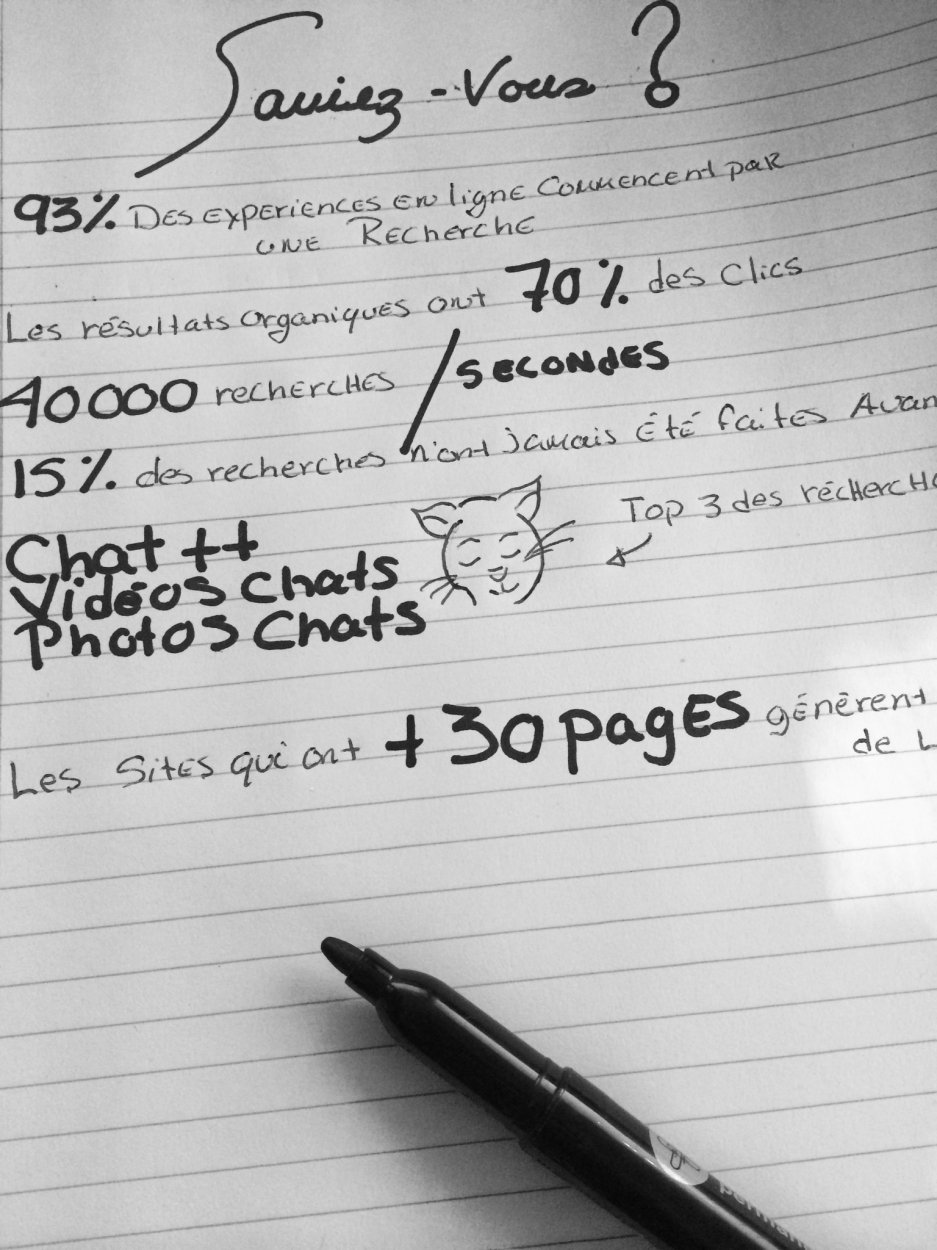 Saviez-Vous ?
93% Des experiences en ligne commencent par
une Recherche
Les résultats organiques ont 70% des clics
40000 recherches / secondes
15% des recherches n'ont jamais été faites Avan
Top 3 des recherche
Chat ++
Vidéos Chats
Photos Chats
Les Sites qui ont +30 pages génèrent
de L